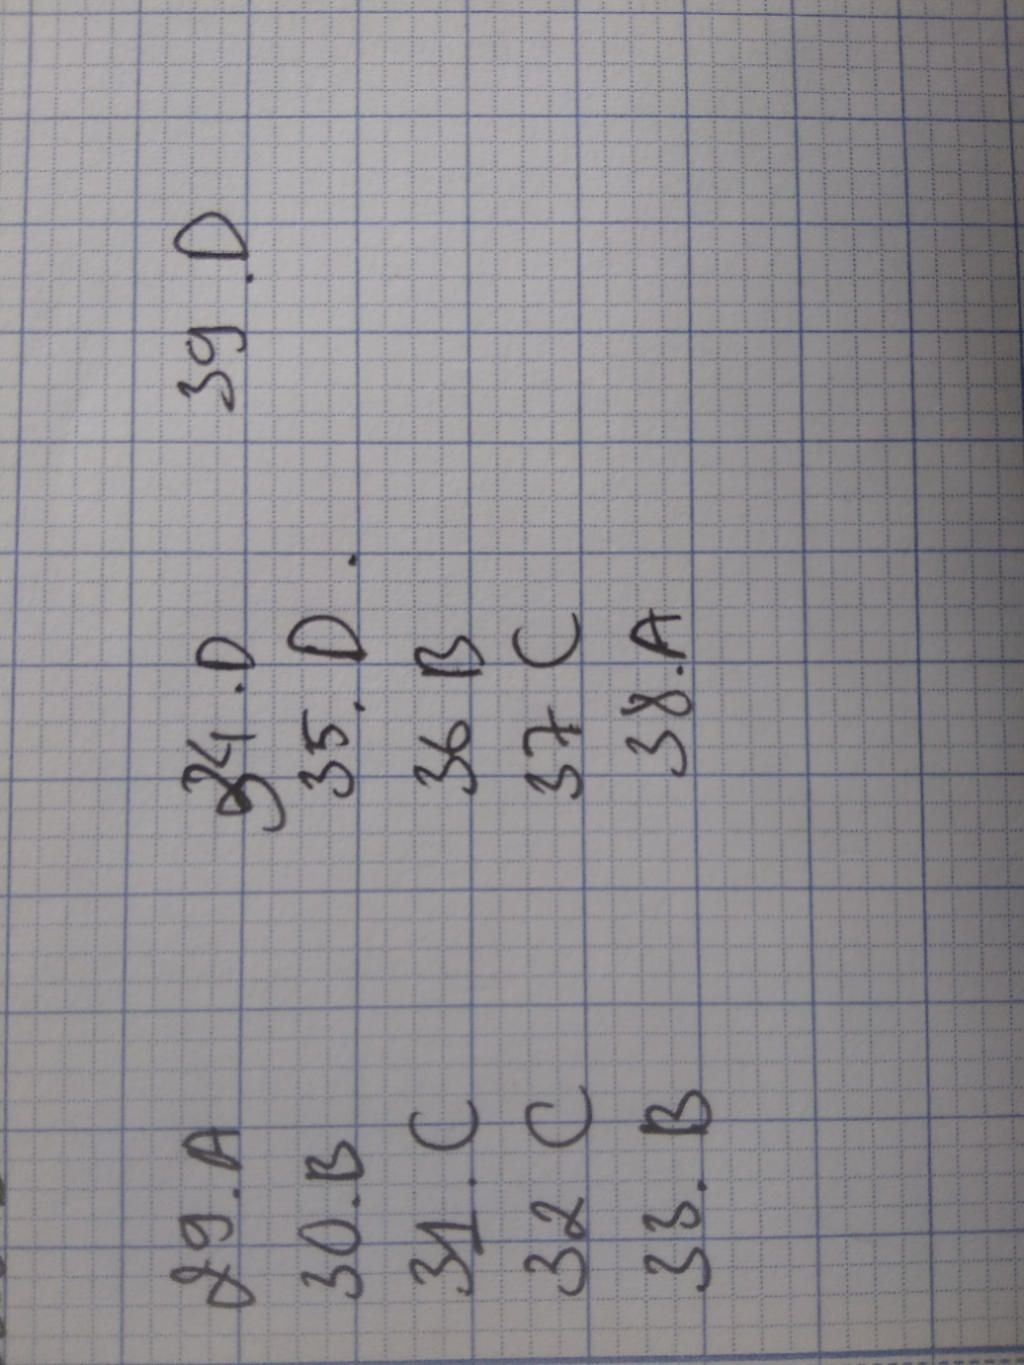 29.A 34.D 39.D
30.B 35.D.
31.C 36 B
32 C 37 C
33.B 38.A